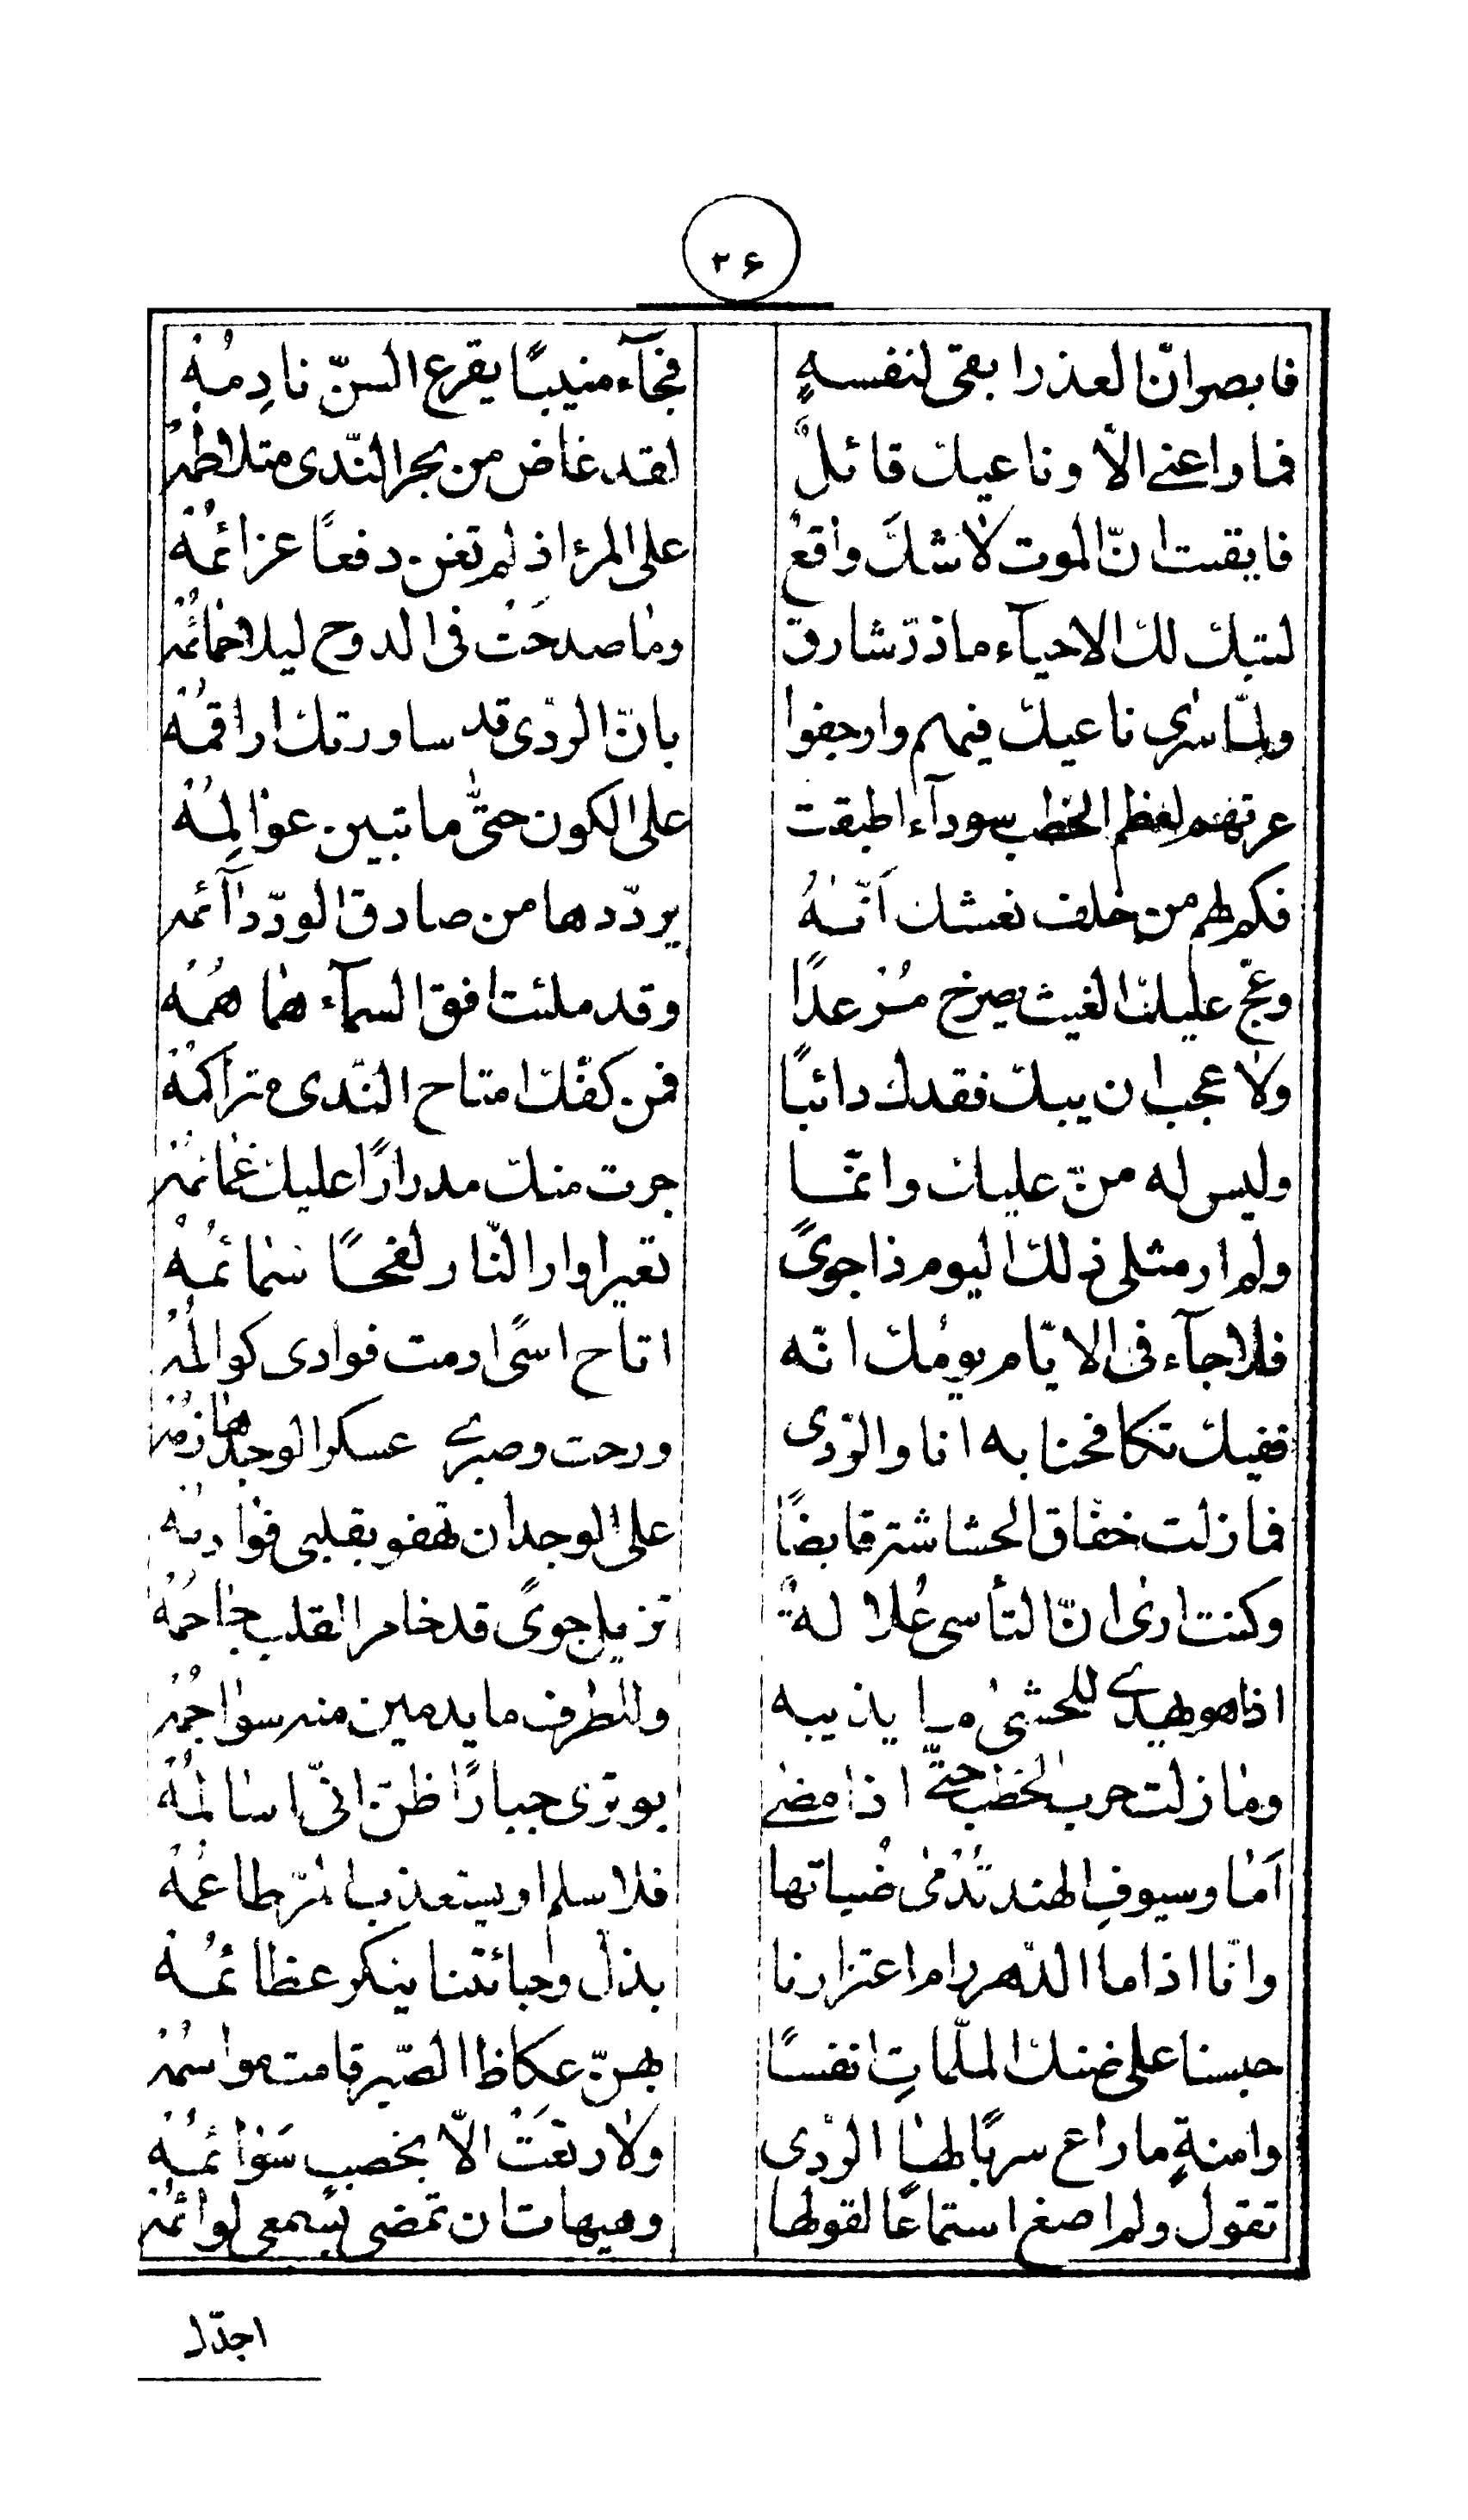 ۲۶
فابصر انّ العذر ابقی لنفسهِ فجآء منیبًا یقرع السنّ نادِمُهُ
فما راعنی الّا وناعیك قائلٌ لقد غاض من بحر النّدی متلاطمه
فایقنت انّ الموت لاشكَ واقعُ علی المرء اذ لم تغن دفعًا عزائمُهُ
لتبك لك الاحیآء ماذرّ شارق وما صدحَت فی الدوح لیلا حمائمُه
ولمّا سری ناعیك فیهم وارجفوا بانّ الردی قد ساورتك اراقمُهُ
عرتهم لعظم الخطب سودآء اطبقت علی الکون حتّی ما تبین عوالِمُهُ
فکم لهم من خلف نعشك اَنّهُ یردّدها من صادق الودّ دآئمه
وعج علیك الغیث یصرخ مُرعدًا وقد ملئت افق السمآء هماهمُهُ
ولا عجب ان یبك فقدك دائبًا فمن کفّك امتاح النّدی متراکمُهُ
ولیس له منّ علیك وانّما جرت منك مدرارًا علیك غمائمُه
ولم ار مثلی فی لك الیوم ذا جویً تعیر اوار النّار لفحًا سمائمُهُ
فلا جآء فی الایّام یومُك انّه اتاح اسًی ادمت فوادی کوالمُه
ففیك تکافحنا به انا والرّدی ورحت وصبری عسکر الوجد هازمُه
فما زلت خفّاق الحشاشة قابضًا علی الوجد ان تهفو بقلبی قوادمُه
وکنت اری انّ التأسی عُلالةُ تزیل جویً قد خامر القلب جاحمُهُ
اذا هو یهدی للحشی ما یذیبه وللطرف ما یدمین منه سواجمُه
وما زلت حرب الخطب حتّی اذا مضی بوتری جبارًا ظنّ انّی اسالمُهُ
اَما وسیوفِ الهند تُدْمی ضُباتها فلا سلم او یستعذب المرّ طاعمُهُ
وانّا اذا ما الدّهر رام اعتزارنا بذل وجائتنا بنکر عظائمُهُ
حبسنا علی ضنك الملّماتِ انفسًا بهنّ عکاظ الصّبر قامت مواسمُه
وامنةٍ ما راع سربًا لها الرّدی ولا رتعَتْ الّا بخصبٍ سَوائمُهُ
تقول ولم اصغ استماعًا لقولها وهیهات ان تمضی بسمعی لوائمُه
اجدّك